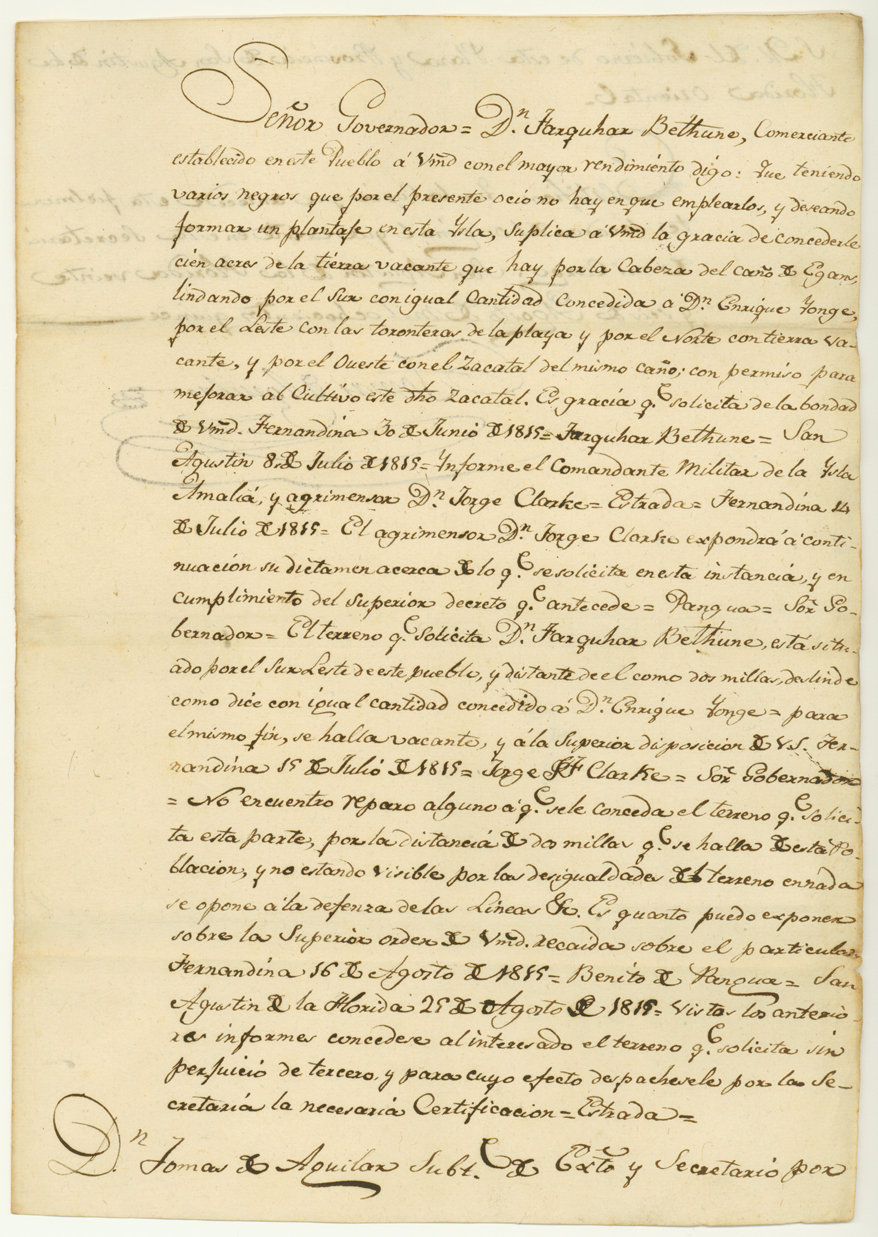 Señor Governador = Dn. Farquhar Bethune, Comerciante
establecido en este Pueblo á Vmd con el mayor rendimiento digo: Que teniendo
varios negros que por el presente ocio no hay en que emplearlos, y deseando
formar un plantaje en esta Ysla, suplica a Vmd la gracia de concederle
cien acres de la tierra vacante que hay por la Cabeza del caño de Egans,
lindando por el Sur con igual Cantidad concedida á Dn. Enrique Yonge,
por el Leste con las toronteras de la playa y por el Norte con tierra va-
cante, y por el Oueste con el Zacatal del mismo caño; con permiso para
mejorar al Cultivo este dho Zacatal. Es gracia q.e solicita de la bondad
de Vmd. Fernandina 30 de Junio de 1815 = Farquhar Bethune = San
Agustin 8 de Julio de 1815 = Ynforme el Comandante Militar de la Ysla
Amalia, y agrimensor Dn. Jorge Clarke = Estrada = Fernandina 14
de Julio de 1815 = El agrimensor Dn. Jorge Clarke expondrá á conti-
nuación su dictamen acerca de lo q.e se solicita en esta instancia, y en
cumplimiento del superior decreto q.e antecede = Pangua = Sor. Go-
bernador = El terreno q.e solicita Dn. Farquhar Bethune, está situ-
ado por el Sur Leste de este pueble, y distante de el como dos millas, deslinde
como dice con igual cantidad concedido á Dn. Enrique Yonge = para
el mismo fin, se halla vacante, y á la Superior disposicion de V.S. Fer-
nandina 15 de Julio de 1815 = Jorge JF Clarke = Sor. Gobernador
= No encuentro reparo alguno a q.e se le conceda el terreno q.e solici-
ta esta parte, por la distancia de dos millas q.e se halla de esta Po-
blacion, y no estando visible por las desigualdades del terreno en nada
se opone a la defenza de las Lineas &c. Es quanto puedo exponer
sobre la Superior orden de Vmd. recaida sobre el particular
Fernandina 16 de Agosto de 1815 = Benito de Pangua = San
Agustin de la Florida 25 de Agosto de 1815 = Vistos los anterio-
res informes concedese al interesado el terreno q.e solicita sin
perjuicio de tercero, y para cuyo efecto despachesele por la Se-
cretaria la necesaria Certificacion = Estrada =
Dn. Tomas de Aguilar Subt.e de Exto y Secretario por